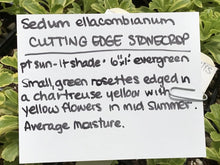 Sedum ellacombianum
CUTTING EDGE STONECROP
pt sun-lt shade · 6"·1' · evergreen
Small, green rosettes edged in
a chartreuse yellow with
yellow flowers in mid summer.
Average moisture.